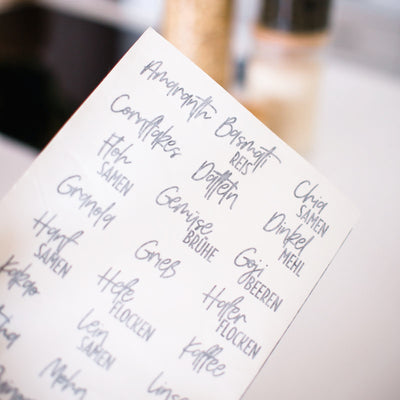 Amaranth
Basmati
REIS
Chia
SAMEN
Cornflakes
Datteln
Dinkel
MEHL
Floh
SAMEN
Gemüse
BRÜHE
Goji
BEEREN
Granola
Grieß
Hafer
FLOCKEN
Hanf
SAMEN
Hefe
FLOCKEN
Kaffee
Kakao
Lein
SAMEN
Linse
Mohn